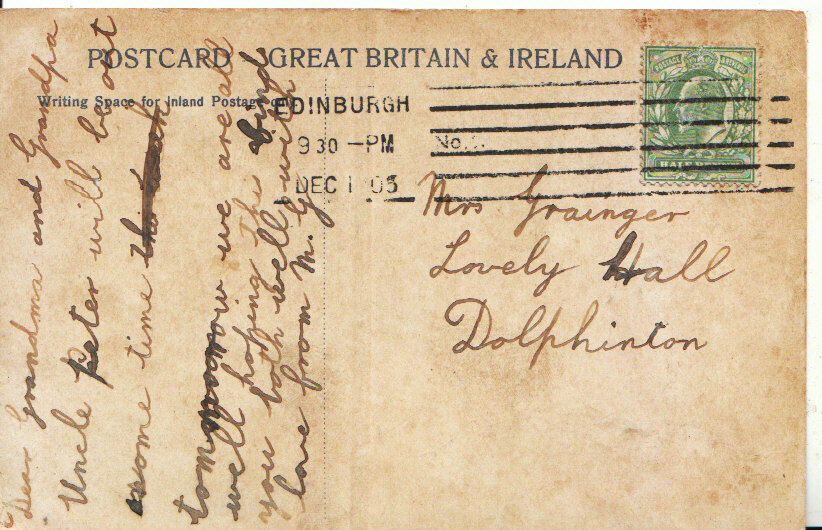 POSTCARD GREAT BRITAIN & IRELAND
Writing Space for Inland Postage only
EDINBURGH
9 30 - PM
DEC 1 05
No.
HALF
Dear Grandma and Grandpa
Uncle Peter will be out
some time
tomorrow we are all
well hoping the
you both well with
love from M. G
Mrs Grainger
Lovely Hall
Dolphinton